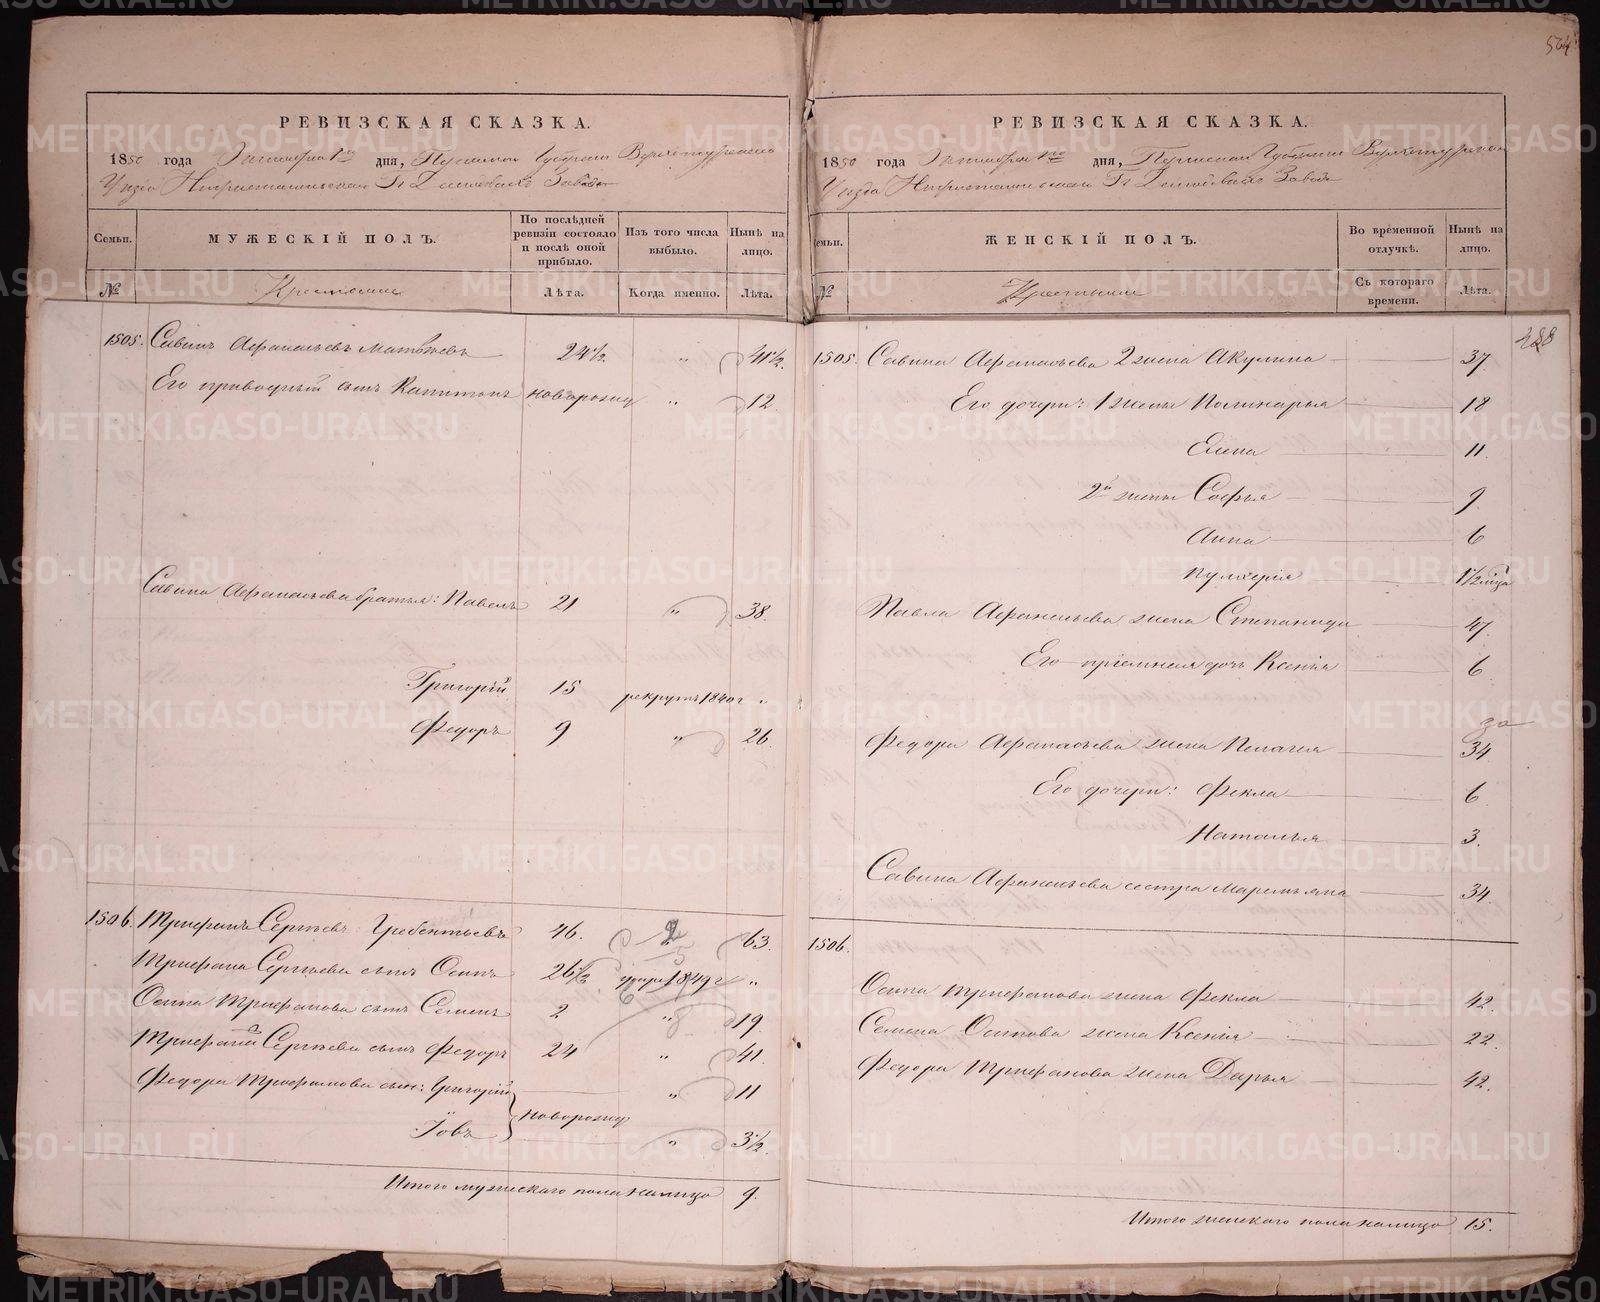 524
РЕВИЗСКАЯ СКАЗКА.
1850 года Октября 1го дня, Пермской Губернии Верхотурскаго
Уезда Нижнетагильскаго Гг Демидовыхъ Завода
Семьи.
МУЖЕСКІЙ ПОЛЪ.
По послѣдней ревизіи состояло и послѣ оной прибыло.
Изъ того числа выбыло.
Нынѣ на лицо.
№
Крестьяне
Лѣта.
Когда именно.
Лѣта.
1505. Савинъ Афанасьевъ Матвѣевъ 24½ " 41½.
Его приводный сынъ Капитонъ новорожд " 12
Савина Афанасьева братья: Павелъ 21 " 38.
Григорій 15 рекрутъ 1840 г "
Федоръ 9 " 26
1506. Трифанъ Сергѣевъ Гребентьевъ 46. 2 63.
Трифана Сергѣева сынъ Осипъ 26½ умеръ 1849 г "
Осипа Трифанова сынъ Семенъ 2 " 19.
Трифана Сергѣева сынъ Федоръ 24 " 41.
Федора Трифанова сын: Григорій " 11
новорожд
Іовъ " 3½.
Итого мужескаго пола налицо 9.
РЕВИЗСКАЯ СКАЗКА.
1850 года Октября 1го дня, Пермской Губернии Верхотурскаго
Уезда Нижнетагильскаго Гг Демидовыхъ Завода
Семьи.
ЖЕНСКІЙ ПОЛЪ.
Во временной отлучкѣ.
Нынѣ на лицо.
№
Крестьяне
Съ котораго времени.
Лѣта.
488
1505. Савина Афанасьева 2 жена Акулина 37
Его дочери: 1 жены Полинарья 18
Елена 11.
2й жены Софья 9.
Анна 6
Пулхерія 1½ года
Павла Афанасьева жена Степанида 47.
Его пріемная дочь Ксенія 6
30
Федора Афанасьева жена Пелагея 34
Его дочери: Фекла 6
Наталья 3.
Савина Афанасьева сестра Маремьяна 34.
1506.
Осипа Трифанова жена Фекла 42.
Семена Осипова жена Ксенія 22.
Федора Трифанова жена Дарья 42.
Итого женскаго пола налицо 15.
METRIKI.GASO-URAL.RU